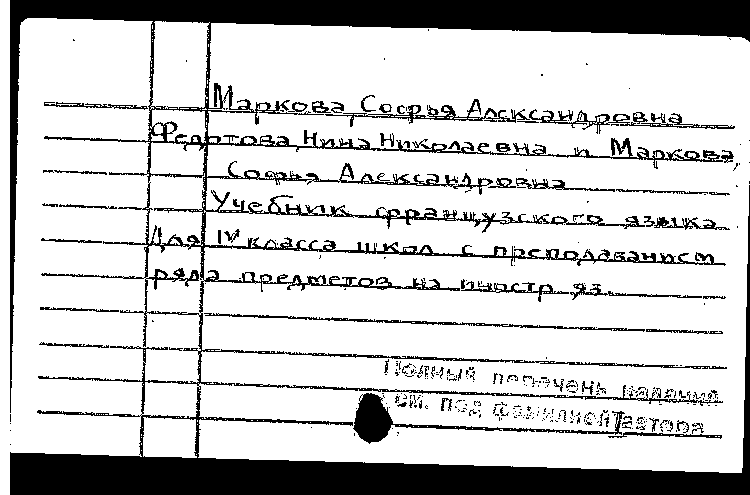 Маркова, Софья Александровна
Федотова, Нина Николаевна и Маркова,
Софья Александровна
Учебник французского языка
Для IV класса школ с преподаванием
ряда предметов на иностр яз.
Полный перечень изданий
см. под фамилией автора